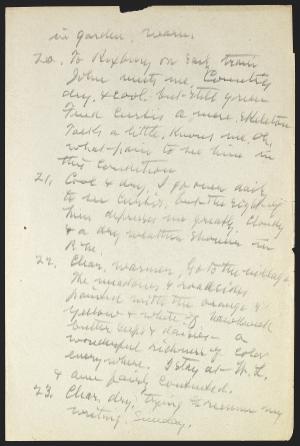 in garden, warm.
20. To Roxbury on early train
John meets me, Country
dry, & cool but still green
Fred Curtis a mere skeleton
Talks a little, knows me, Oh,
what pain to see him in
this condition
21. Cool & dry, I go over daily
to see Curtis, but the sight of
him depresses me greatly. Cloudy
& a dry weather shower in
P.M.
22. Clear, warmer, Go to the
The meadows & roadsides
painted with the orange &
yellow & white of hawkweed
butter cups & daisies - a
wonderful richness of color
everywhere. I stay at W. L.
& am fairly contented.
23. Clear, dry, trying to resume my
writing, Sunday.